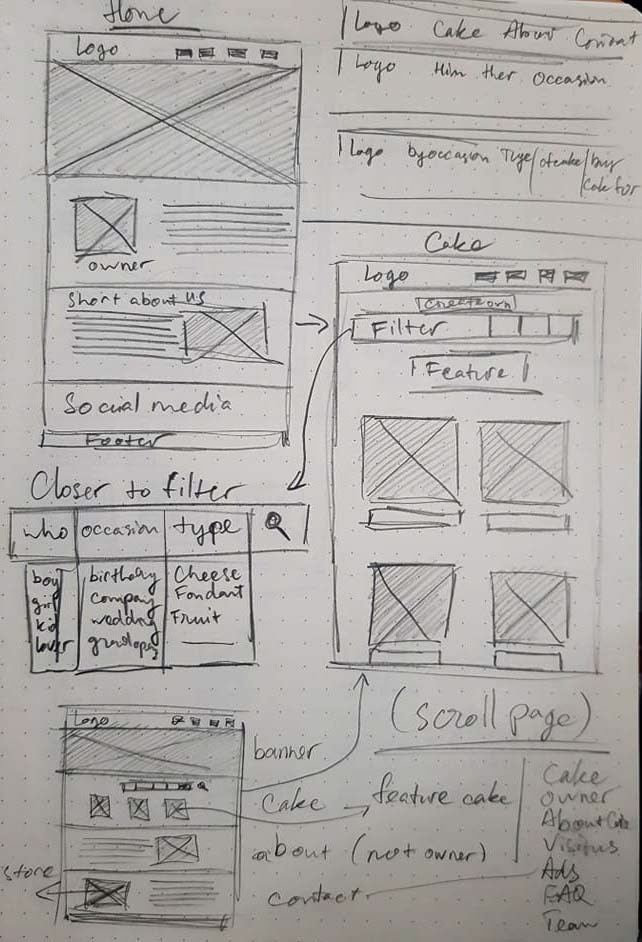 Home
Logo
owner
Short about us
Social media
Footer
Logo Cake About Contact
Logo Him Her Occasion
Logo by occasion Type of cake buy
cake for
Cake
Logo
Filter
Feature
Closer to filter
who occasion type
boy birthday Cheese
girl company Fondant
kid wedding Fruit
lover
Logo
banner
Cake feature cake
about (not owner)
store
contact
(scroll page)
Cake
owner
About Cake
Visit us
Ads
FAQ
Team